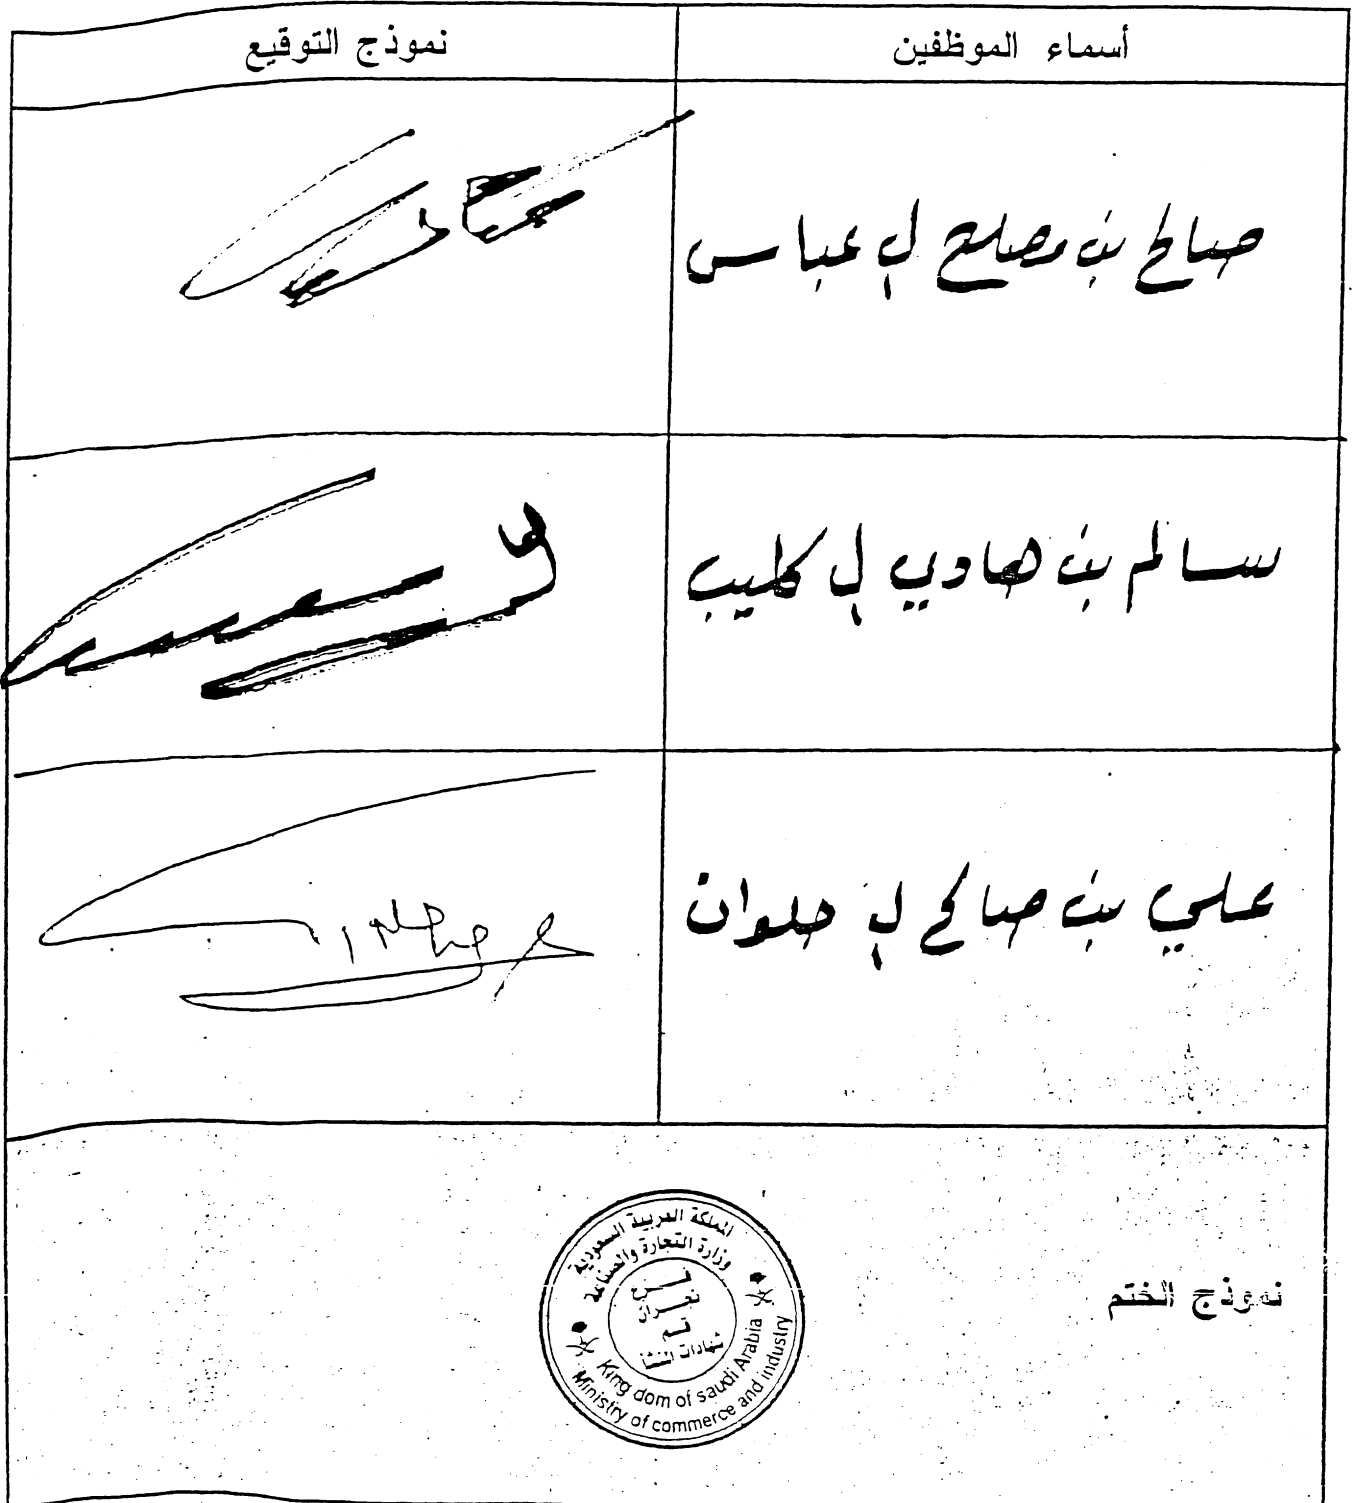 أسماء الموظفين
نموذج التوقيع
صالح بن مصلح ال عباس
سالم بن هادي ال كليب
علي بن صالح ال حلوان
نموذج الختم
المملكة العربية السعودية
وزارة التجارة والصناعة
فرع
نجران
قسم
شهادات المنشأ
King dom of saudi Arabia
Ministry of commerce and industry